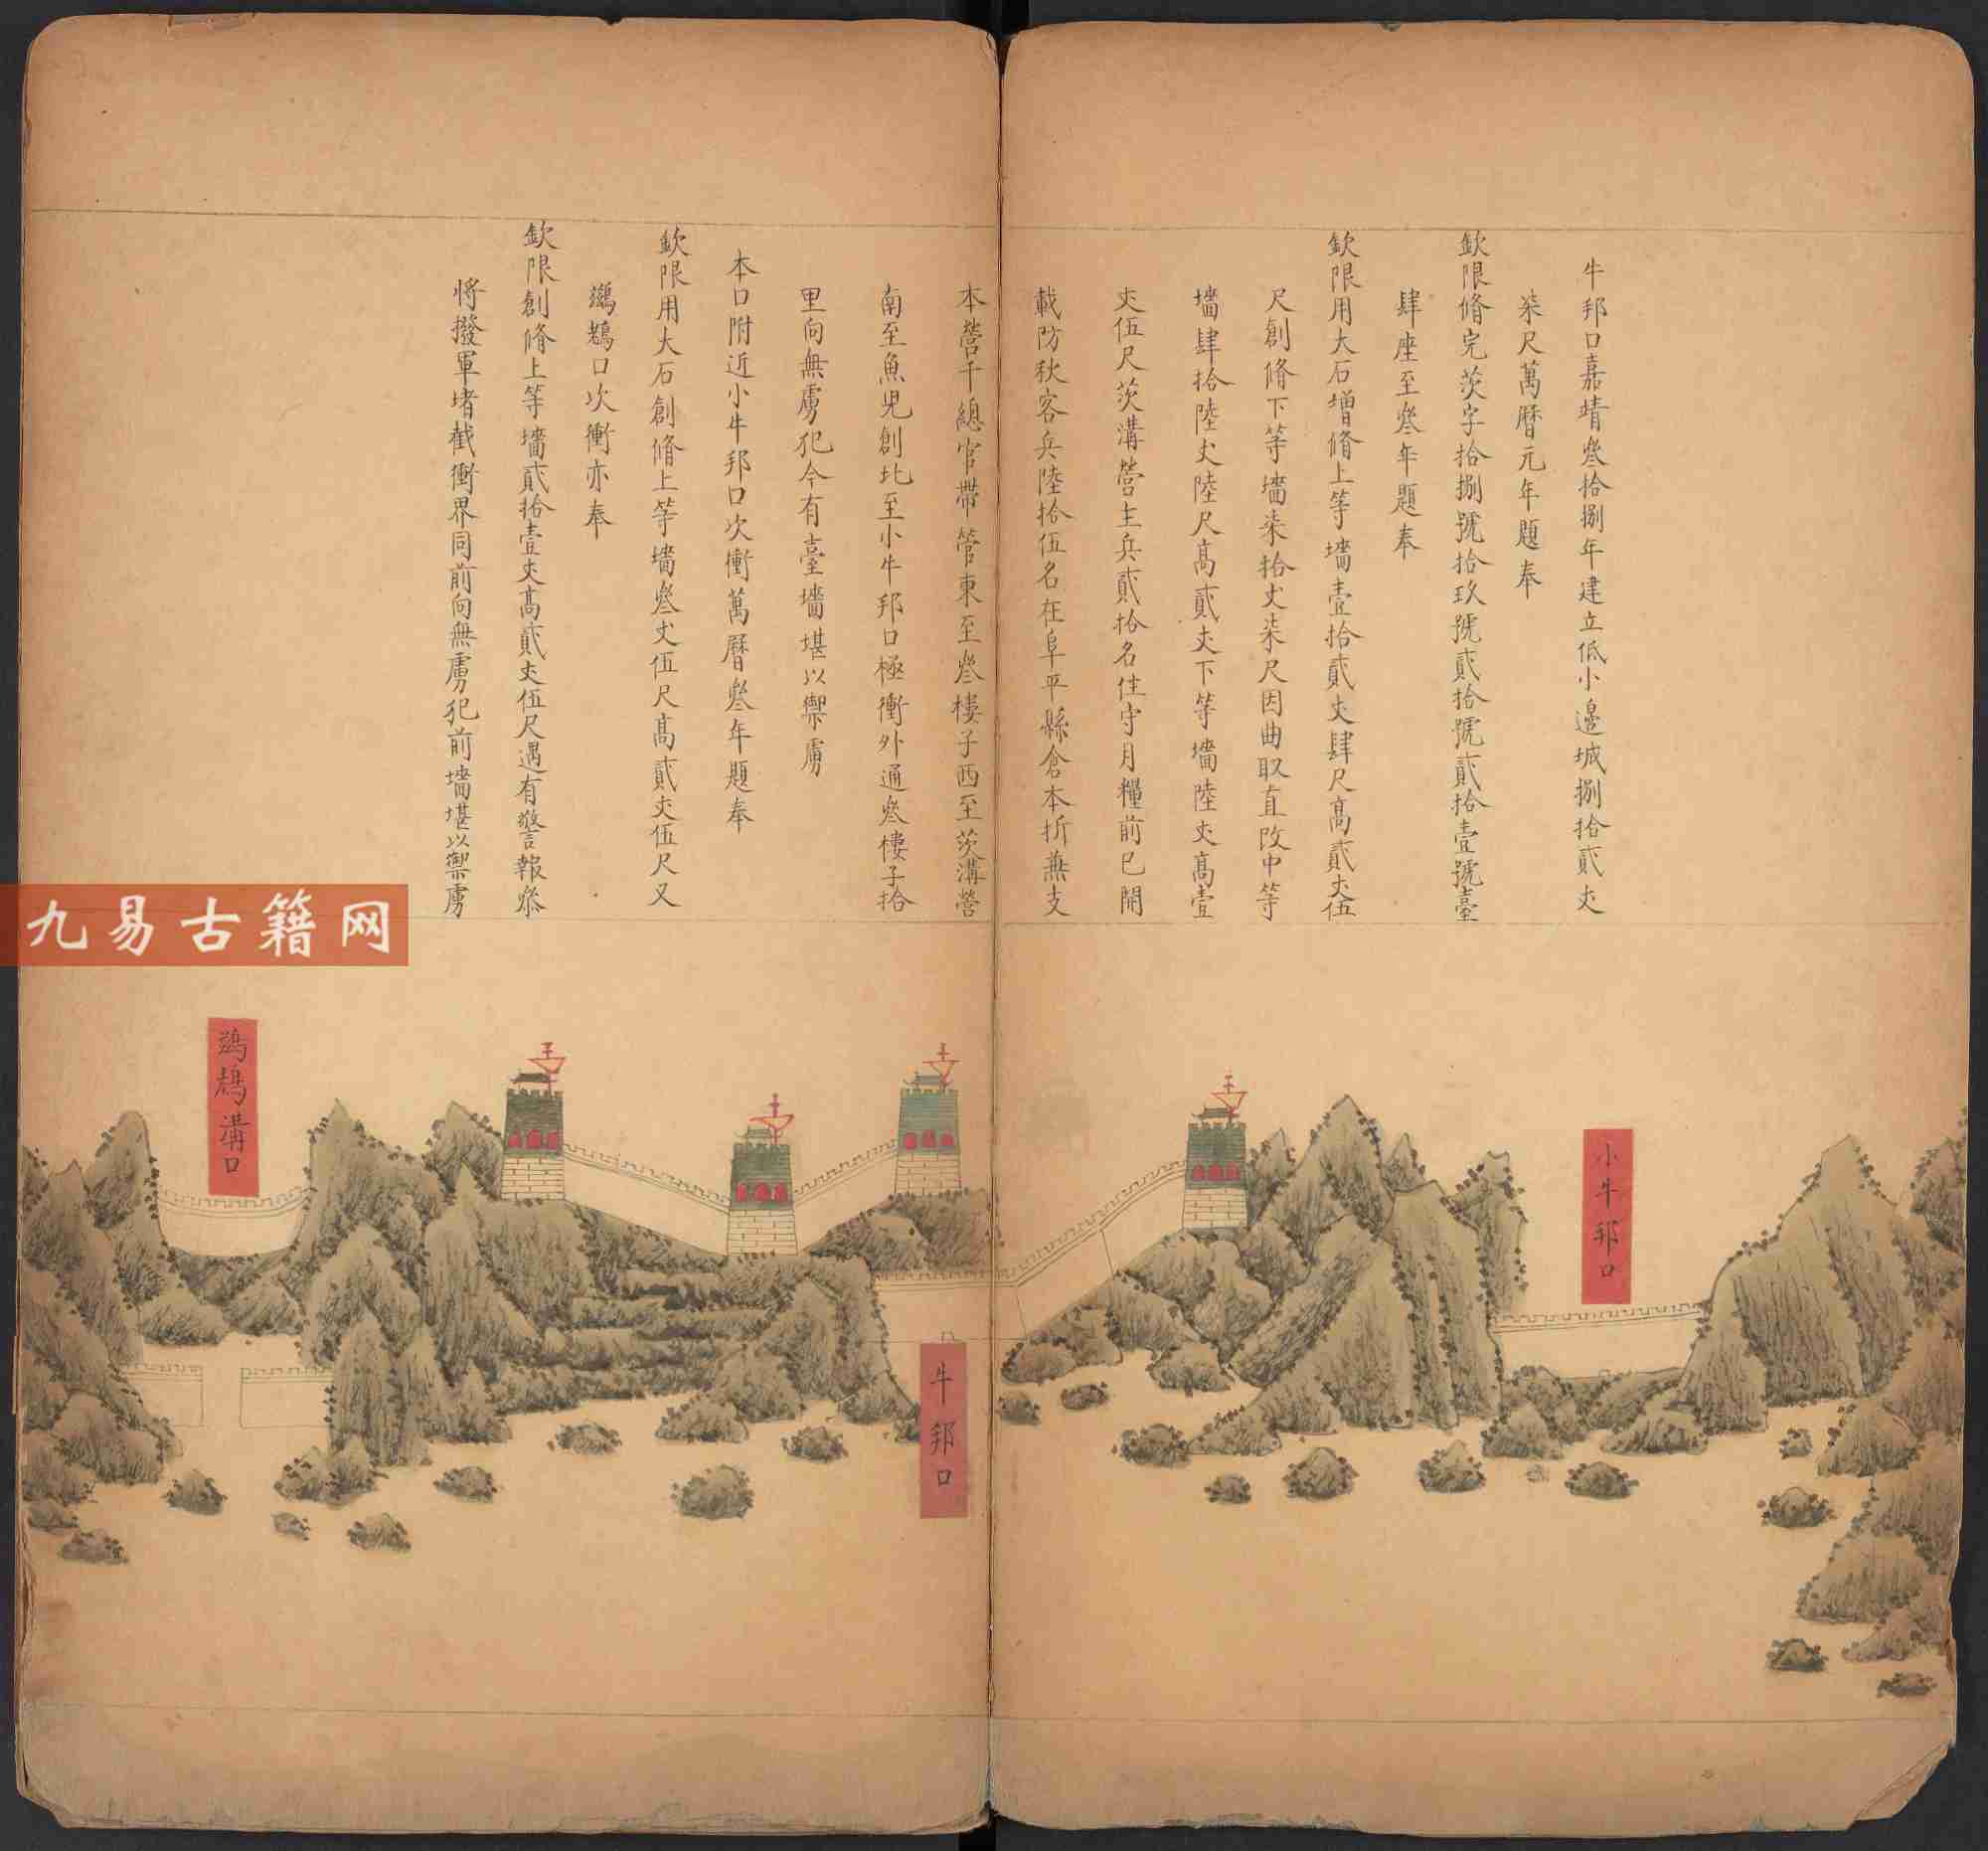 牛邦口嘉靖叁拾捌年建立低小邊城捌拾貳丈
柒尺萬曆元年題奉
欽限脩完茨字拾捌號拾玖號貳拾號貳拾壹號臺
肆座至叁年題奉
欽限用大石增脩上等墻壹拾貳丈肆尺高貳丈伍
尺創脩下等墻柒拾丈柒尺因曲取直改中等
墻肆拾陸丈陸尺高貳丈下等墻陸丈高壹
丈伍尺茨溝營主兵貳拾名住守月糧前已開
載防秋客兵陸拾伍名在阜平縣倉本折兼支
本營千總官帶管東至叁樓子西至茨溝營
南至魚兒創北至小牛邦口極衝外通叁樓子拾
里向無虜犯今有臺墻堪以禦虜
本口附近小牛邦口次衝萬曆叁年題奉
欽限用大石創脩上等墻叁丈伍尺高貳丈伍尺又
口次衝亦奉
欽限創脩上等墻貳拾壹丈高貳丈伍尺遇有警報叅
將撥軍堵截衝界同前向無虜犯前墻堪以禦虜
小牛邦口
牛邦口
溝口
九易古籍网